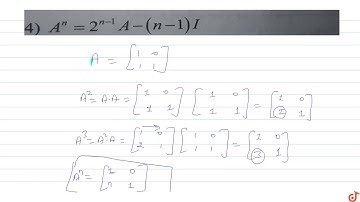 4) Aⁿ = 2ⁿ⁻¹ A − (n−1) I
A = [1 0; 1 1]
A² = A·A = [1 0; 1 1] [1 0; 1 1] = [1 0; 2 1]
A³ = A²·A = [1 0; 2 1] [1 0; 1 1] = [1 0; 3 1]
Aⁿ = [1 0; n 1]